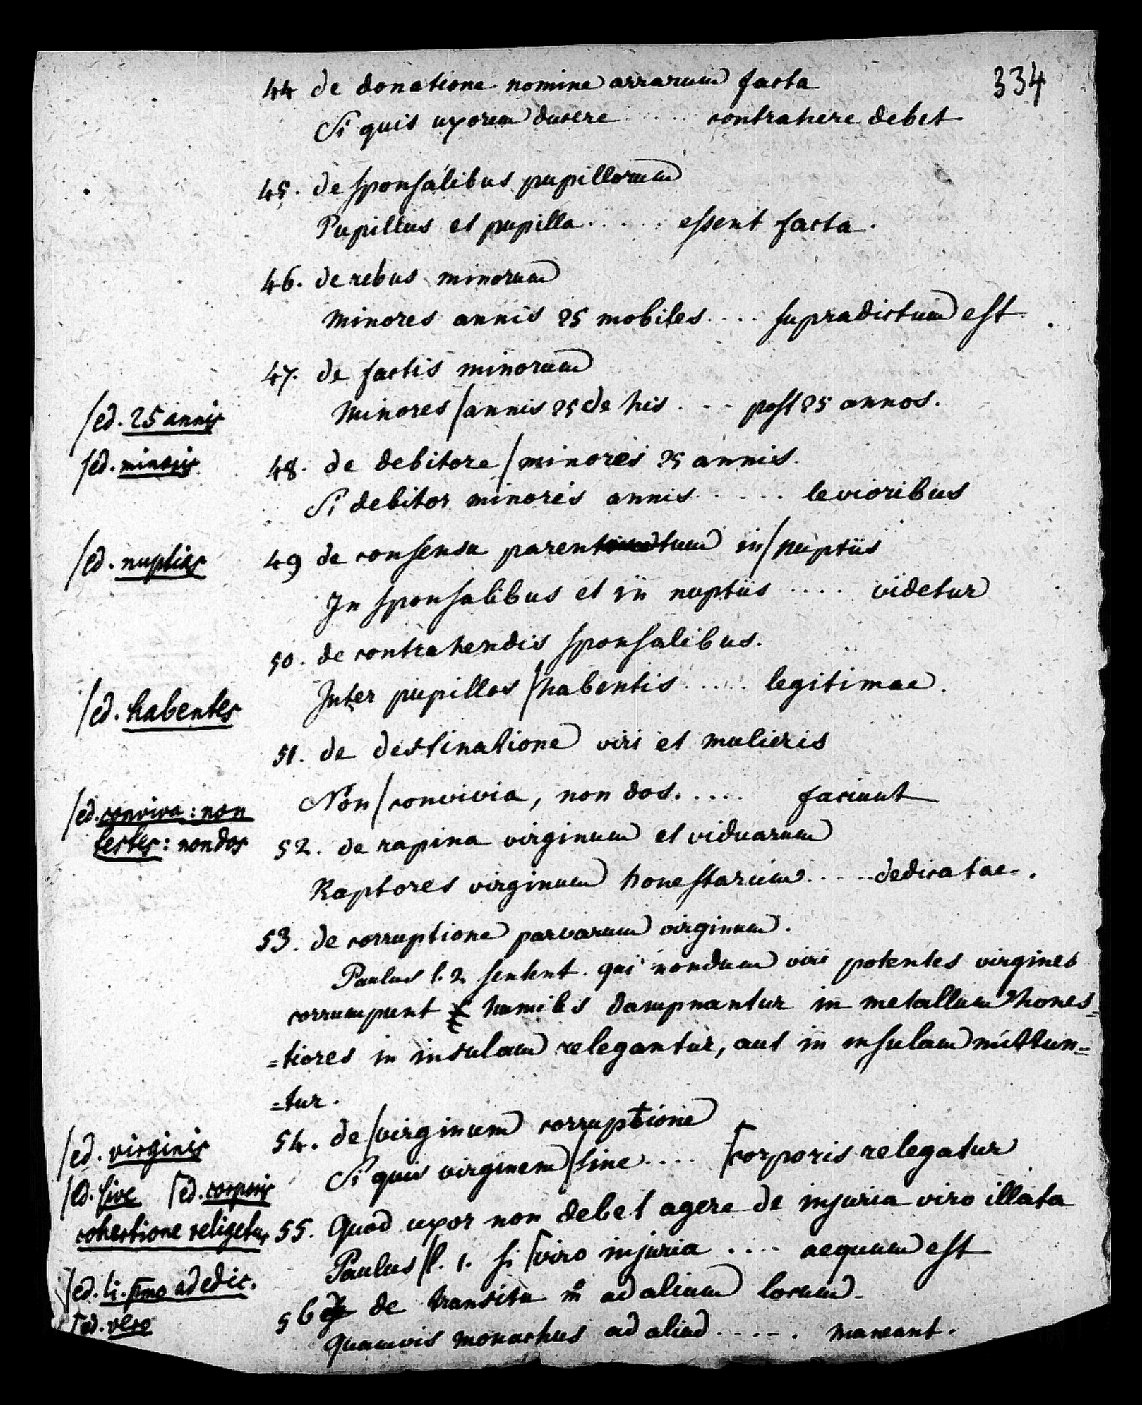 334
44 de donatione nomine arrarum facta
Si quis uxorem ducere ..... contrahere debet
45. de sponsalibus pupillorum
Pupillus et pupilla ..... essent facta.
46. de rebus minorum
Minores annis 25 mobiles .... supradictum est.
47. de factis minorum
/ed. 25 annis
Minores /annis 25 de his ... post 25 annos.
/ed. minoris
48. de debitore /minores 25 annis.
Si debitor minores annis ..... levioribus
/ed. nuptias
49 de consensu parentum in /nuptiis
In sponsalibus et in nuptiis .... videtur
50. de contrahendis sponsalibus.
/ed. habentes
Inter pupillos /habentis ..... legitimae.
51. de destinatione viri et mulieris
/ed. conviva: non
testes: non dos
Non /convivia, non dos. .... faciunt
52. de rapina virginum et viduarum
Raptores virginum honestarum ..... dedicatae.
53. de corruptione parvarum virginum.
Paulus l. 2 sentent. qui nondum viri potentes virgines
corrumpunt humiles dampnantur in metallum hones=
=tiores in insulam relegantur, aut in insulam mittun=
=tur.
/ed. virginis
54. de /virginum corruptione
/ed. sive [ed. corporis
cohertione religetur
Si quis virginem /sine .... [corporis relegatur
55. Quod uxor non debet agere de injuria viro illata
/ed. li. primo ad edic.
[ed. vero
Paulus /l. 1. si [viro injuria .... aequum est
56 de transitu m ad alium locum.
Quamvis monachus ad aliud ..... maneant.